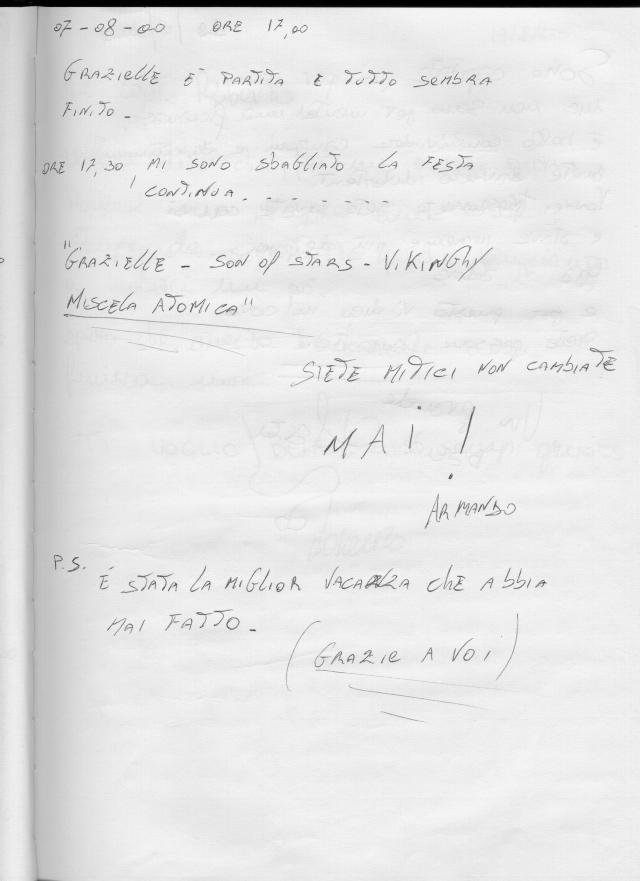 07-08-00 ORE 17,00
GRAZIELLE E' PARTITA E TUTTO SEMBRA
FINITO.
ORE 17,30, MI SONO SBAGLIATO LA FESTA
CONTINUA. - - - - - -
"GRAZIELLE - SON OF STARS - VIKINGHY
MISCELA ATOMICA"
SIETE MITICI NON CAMBIATE
MAI!
ARMANDO
P.S.
È STATA LA MIGLIOR VACANZA CHE ABBIA
MAI FATTO.
(GRAZIE A VOI)